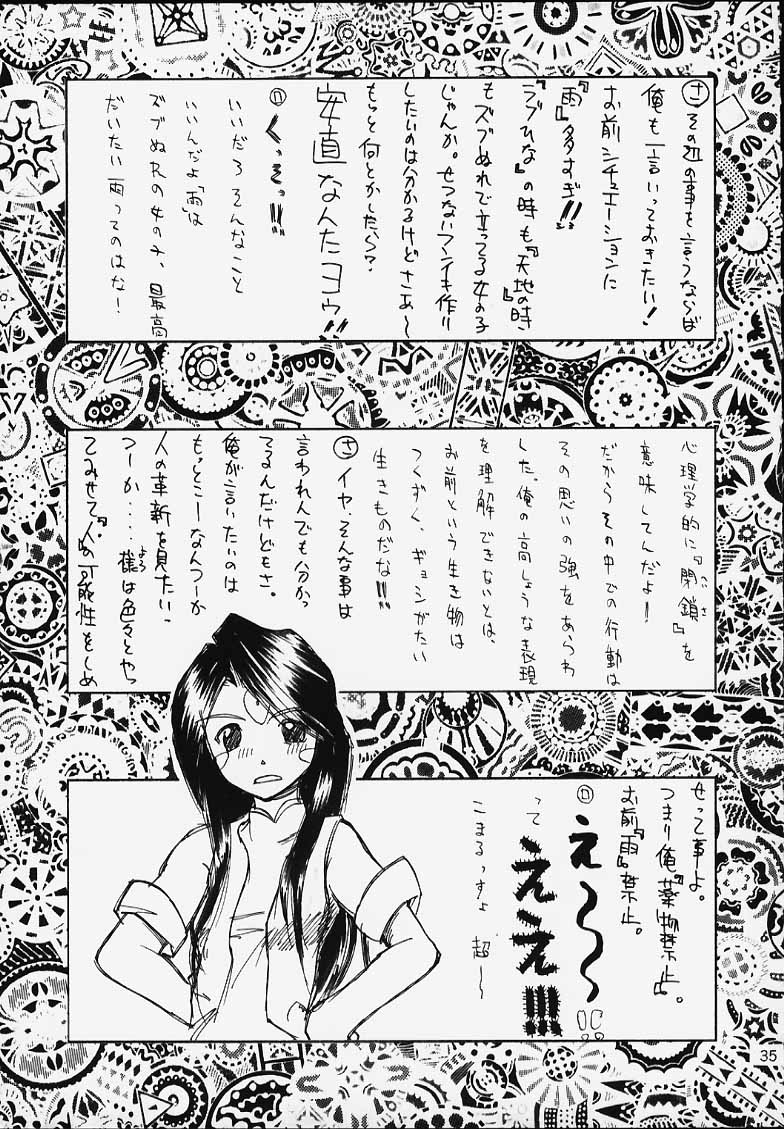 ㋚その辺の事を言うならば
俺も一言いっておきたい!
お前シチュエーションに
『雨』多すぎ!!
『ラブひな』の時も『天地』の時
もズブぬれで立ってる女の子
じゃんか。せつないフンイキ作り
したいのは分かるけどさあ〜
もっと何とかしたら?
安直なんだヨゥ!!
くっそっ!!
いいだろそんなこと
いいんだよ「雨」は
ズブぬれの女の子、最高
だいたい雨ってのはな!
心理学的に『閉鎖』を
へいさ
意味してんだよ!
だからその中での行動は
その思いの強をあらわ
した。俺の高しょうな表現
を理解できないとは、
お前という生き物は
つくずく、ギョシがたい
生きものだな!!!
㋚イヤ、そんな事は
言われんでも分かっ
てるんだけどもさ。
俺が言いたいのは
もっとこーなんつーか
人の革新を見たい、
つーか‥‥様は色々とやっ
よう
てみせて『人の可能性をしめ
せ』って事よ。
つまり俺『薬物禁止』。
お前『雨』禁止。
え〜〜〜!!
って
ええ!!!
こまるっすよ 超〜
35